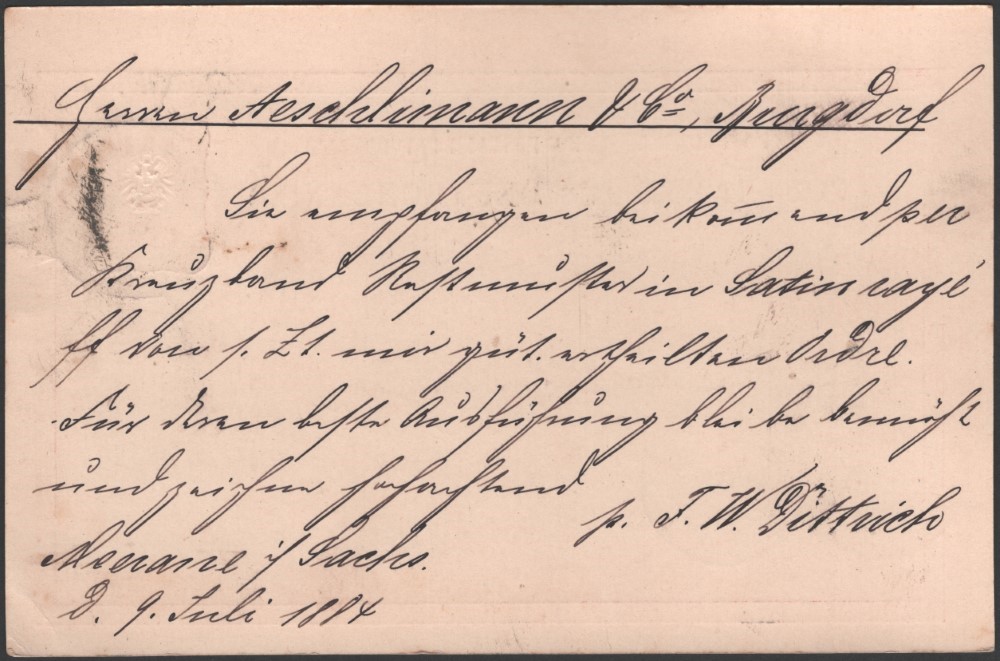 Herren Aeschlimann & Co, Burgdorf
Sie empfangen beikom̅end per
Kreuzband Restmuster in Satin rayé
ff von s. Zt. mir güt. ertheilten Ordre.
Für deren beste Ausführung bleibe bemüht
und zeichne hochachtend
p. F. W. Dittrich
Meerane i/ Sachs.
d. 9. Juli 1884